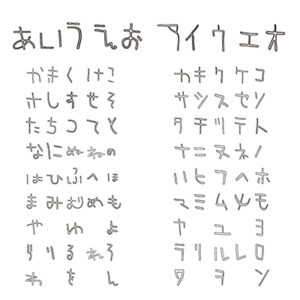 あいうえお アイウエオ
かきくけこ カキクケコ
さしすせそ サシスセソ
たちつてと タチツテト
なにぬねの ナニヌネノ
はひふへほ ハヒフヘホ
まみむめも マミムメモ
やゆよ ヤユヨ
らりるれろ ラリルレロ
わをん ヲヲン